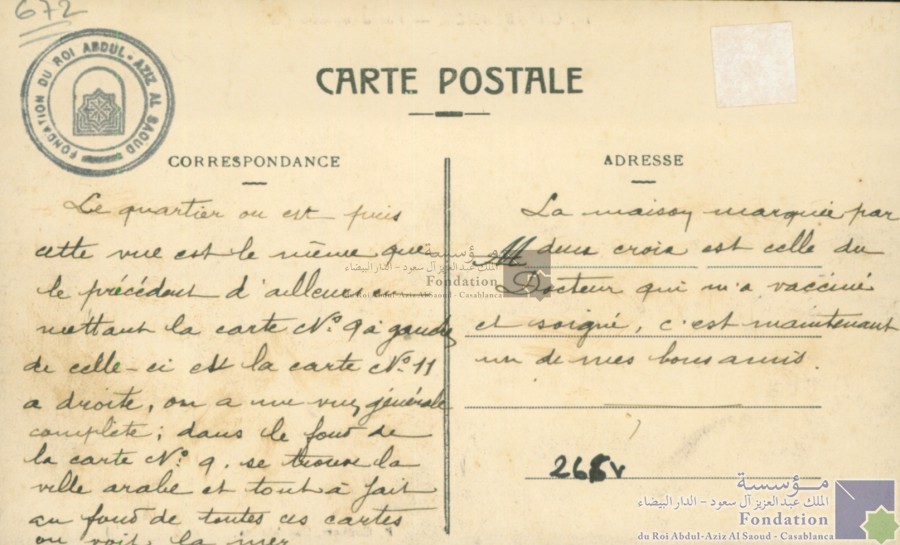 672
FONDATION DU ROI ABDUL-AZIZ AL SAOUD
CARTE POSTALE
CORRESPONDANCE
Le quartier ou est puis
cette vue est le même que
le précédent d'ailleurs en
mettant la carte N.º 9 à gauche
de celle-ci est la carte N.º 11
a droite, on a une vue générale
complète; dans le fond de
la carte N.º 9. se trouve la
ville arabe et tout à fait
au fond de toutes ces cartes
on voit la mer
ADRESSE
La maison marquée par
M deux croix est celle du
Docteur qui m'a vacciné
et soigné, c'est maintenant
un de mes bons amis.
مؤسسة
الملك عبد العزيز آل سعود - الدار البيضاء
Fondation
du Roi Abdul-Aziz Al Saoud - Casablanca
مؤسسة
الملك عبد العزيز آل سعود - الدار البيضاء
Fondation
du Roi Abdul-Aziz Al Saoud - Casablanca